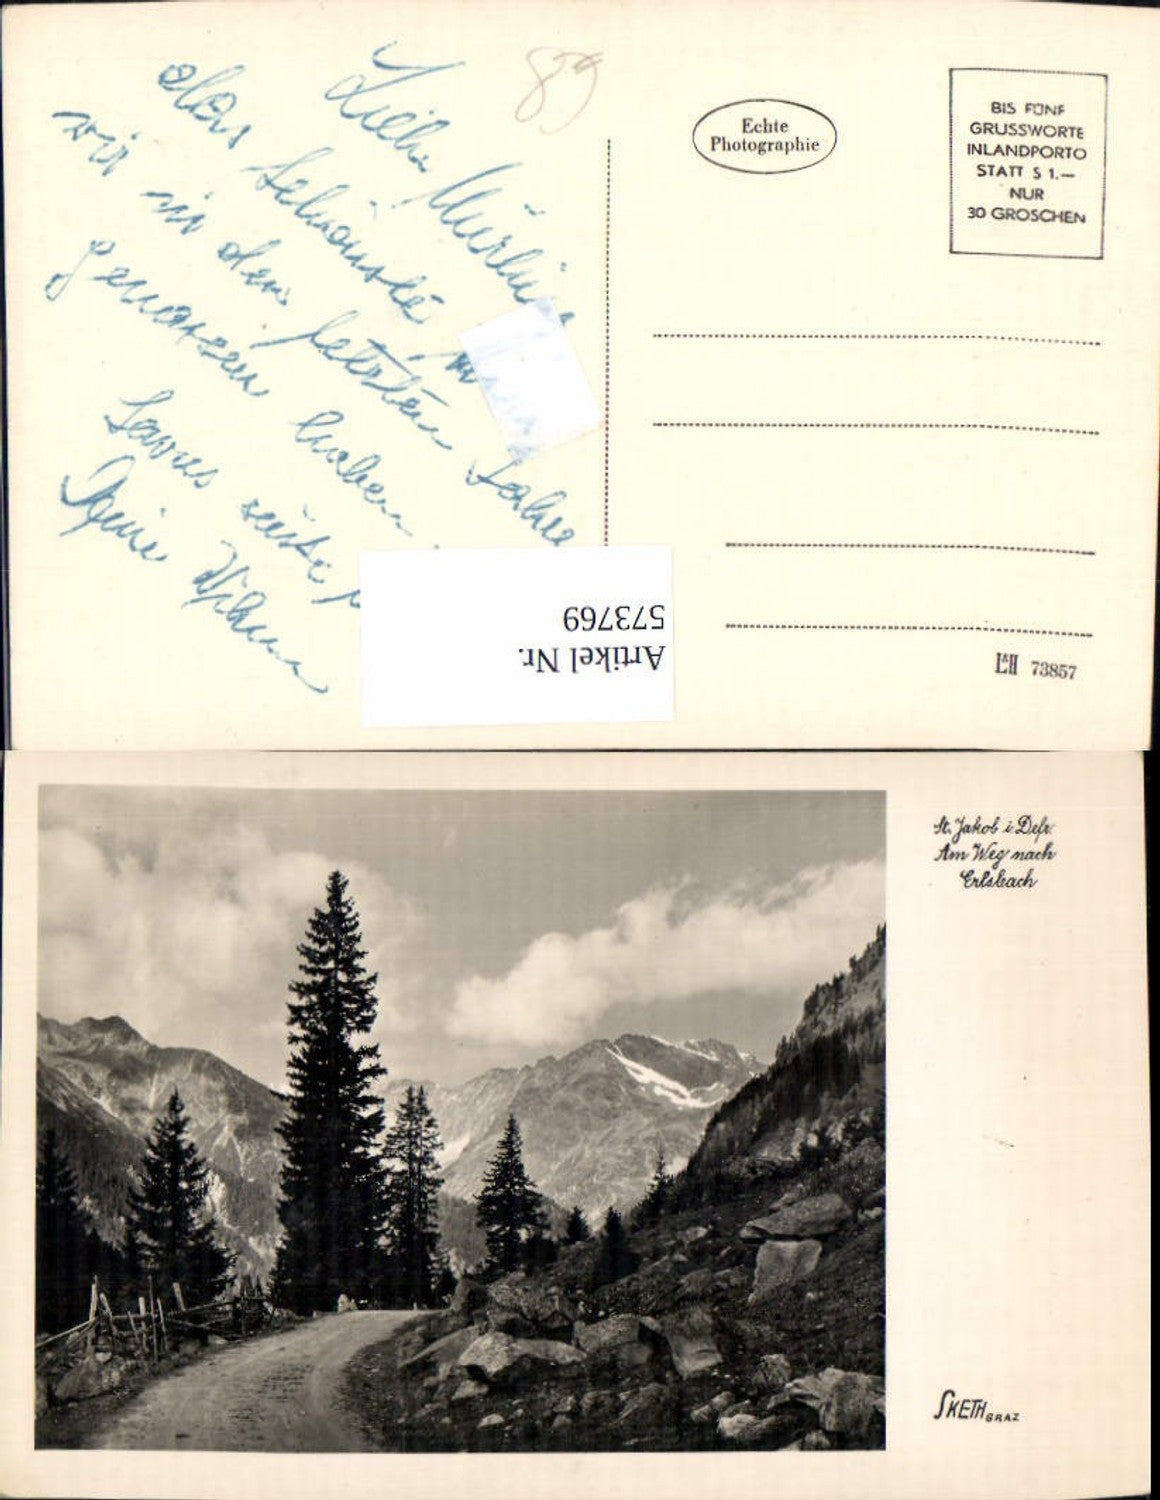 89
Liebe
das schönste
wir in den letzten Jahre
genossen haben.
Servus
Deine
Echte
Photographie
BIS FÜNF
GRUSSWORTE
INLANDPORTO
STATT S 1.—
NUR
30 GROSCHEN
Artikel Nr.
573769
73857
St. Jakob i Defr.
Am Weg nach
Erlsbach
SKETH GRAZ